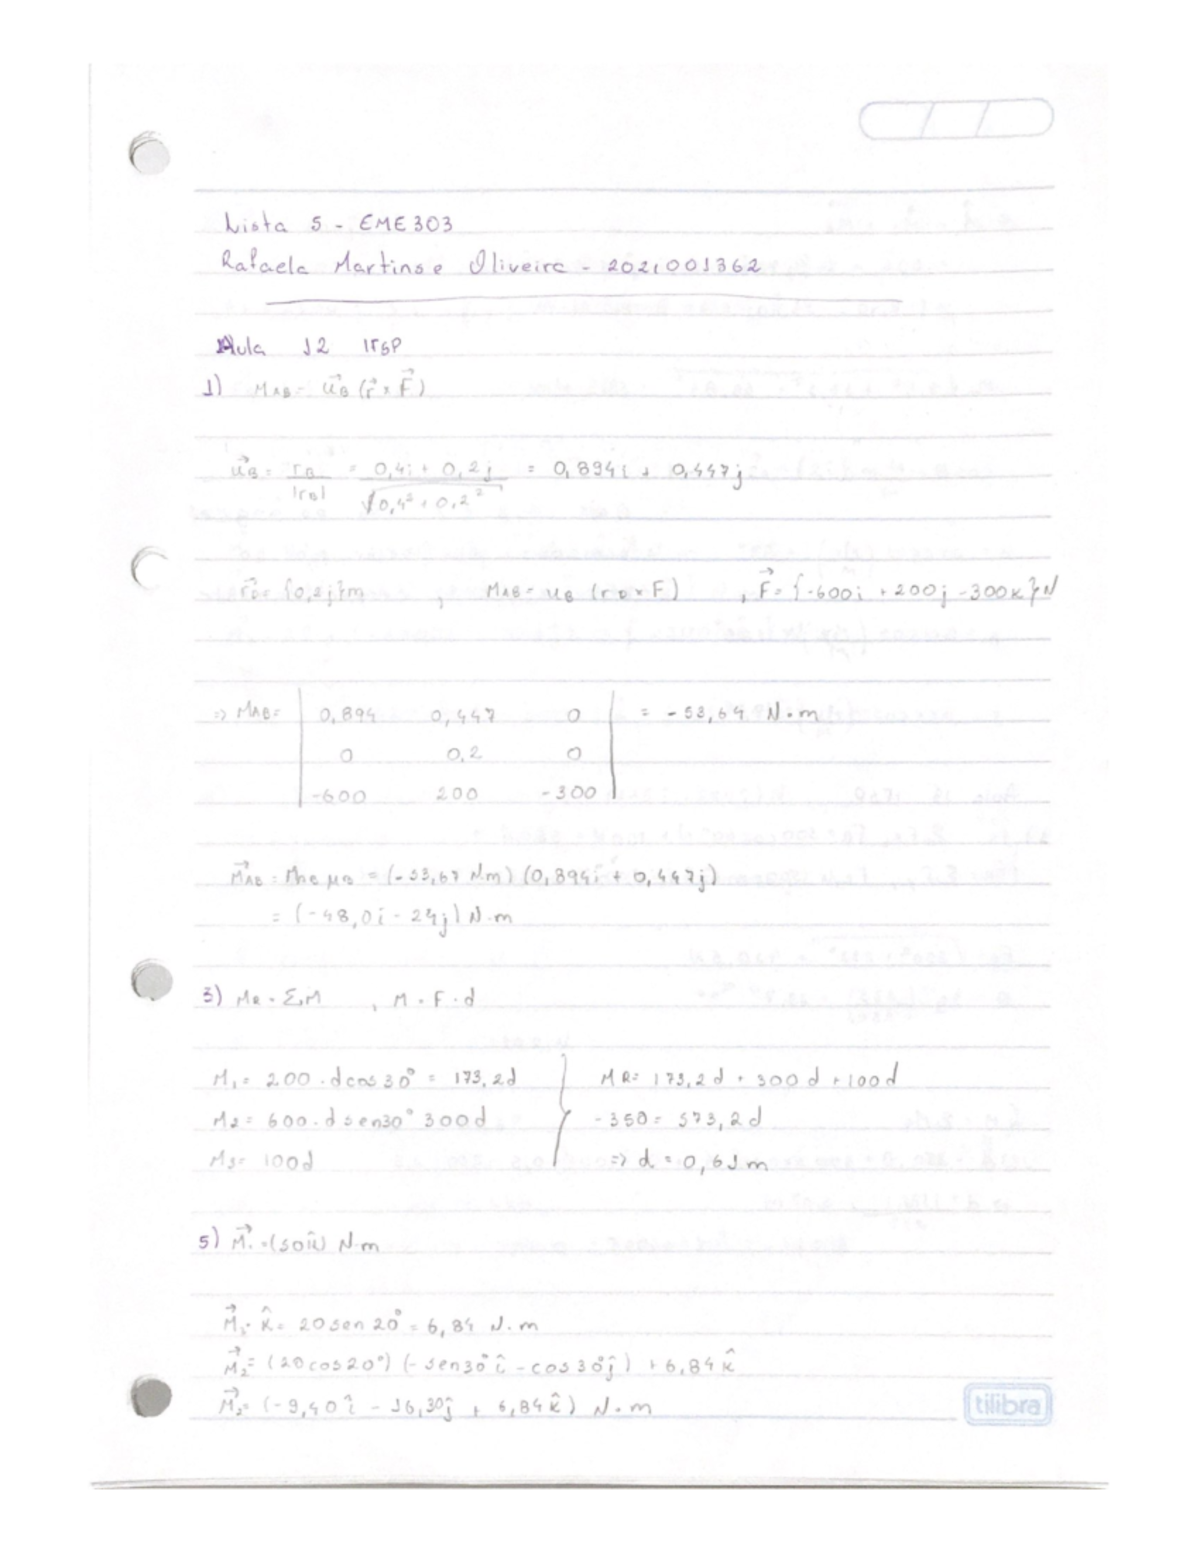 Lista 5 - EME303
Rafaela Martins e Oliveira - 2021001362
Aula 12
1) MAB = u⃗B (r⃗ × F⃗)
u⃗B = rB/|rB| = 0,4i + 0,2j / √0,4² + 0,2² = 0,894i + 0,447j
r⃗D = {0,2j}m , MAB = uB (rD × F) , F⃗ = {-600i + 200j - 300k}N
=> MAB = | 0,894 0,447 0 | = -53,64 N·m
0 0,2 0
-600 200 -300
M⃗AB = MAB μB = (-53,67 N.m) (0,894î + 0,447j)
= (-48,0i - 24j) N·m
3) MR = ΣM , M = F·d
M1 = 200 · dcos30° = 173,2d MR = 173,2d + 300d + 100d
M2 = 600 · d sen30° 300d -350 = 573,2d
M3 = 100d => d = 0,61m
5) = N·m
k̂ = 20sen20° = 6,84 N·m
M⃗2 = (20cos20°) (-sen30°î - cos30°ĵ) + 6,84k̂
M⃗2 = (-9,40î - 16,30ĵ + 6,84k̂) N·m
tilibra